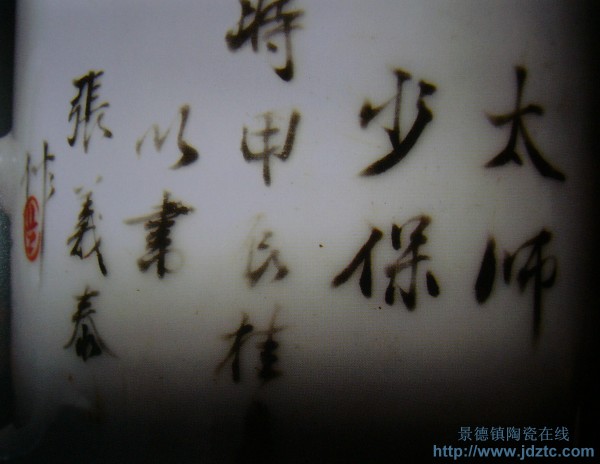 太师
少保
時甲辰桂月
以書
張義泰
作
景德镇陶瓷在线
http://www.jdztc.com